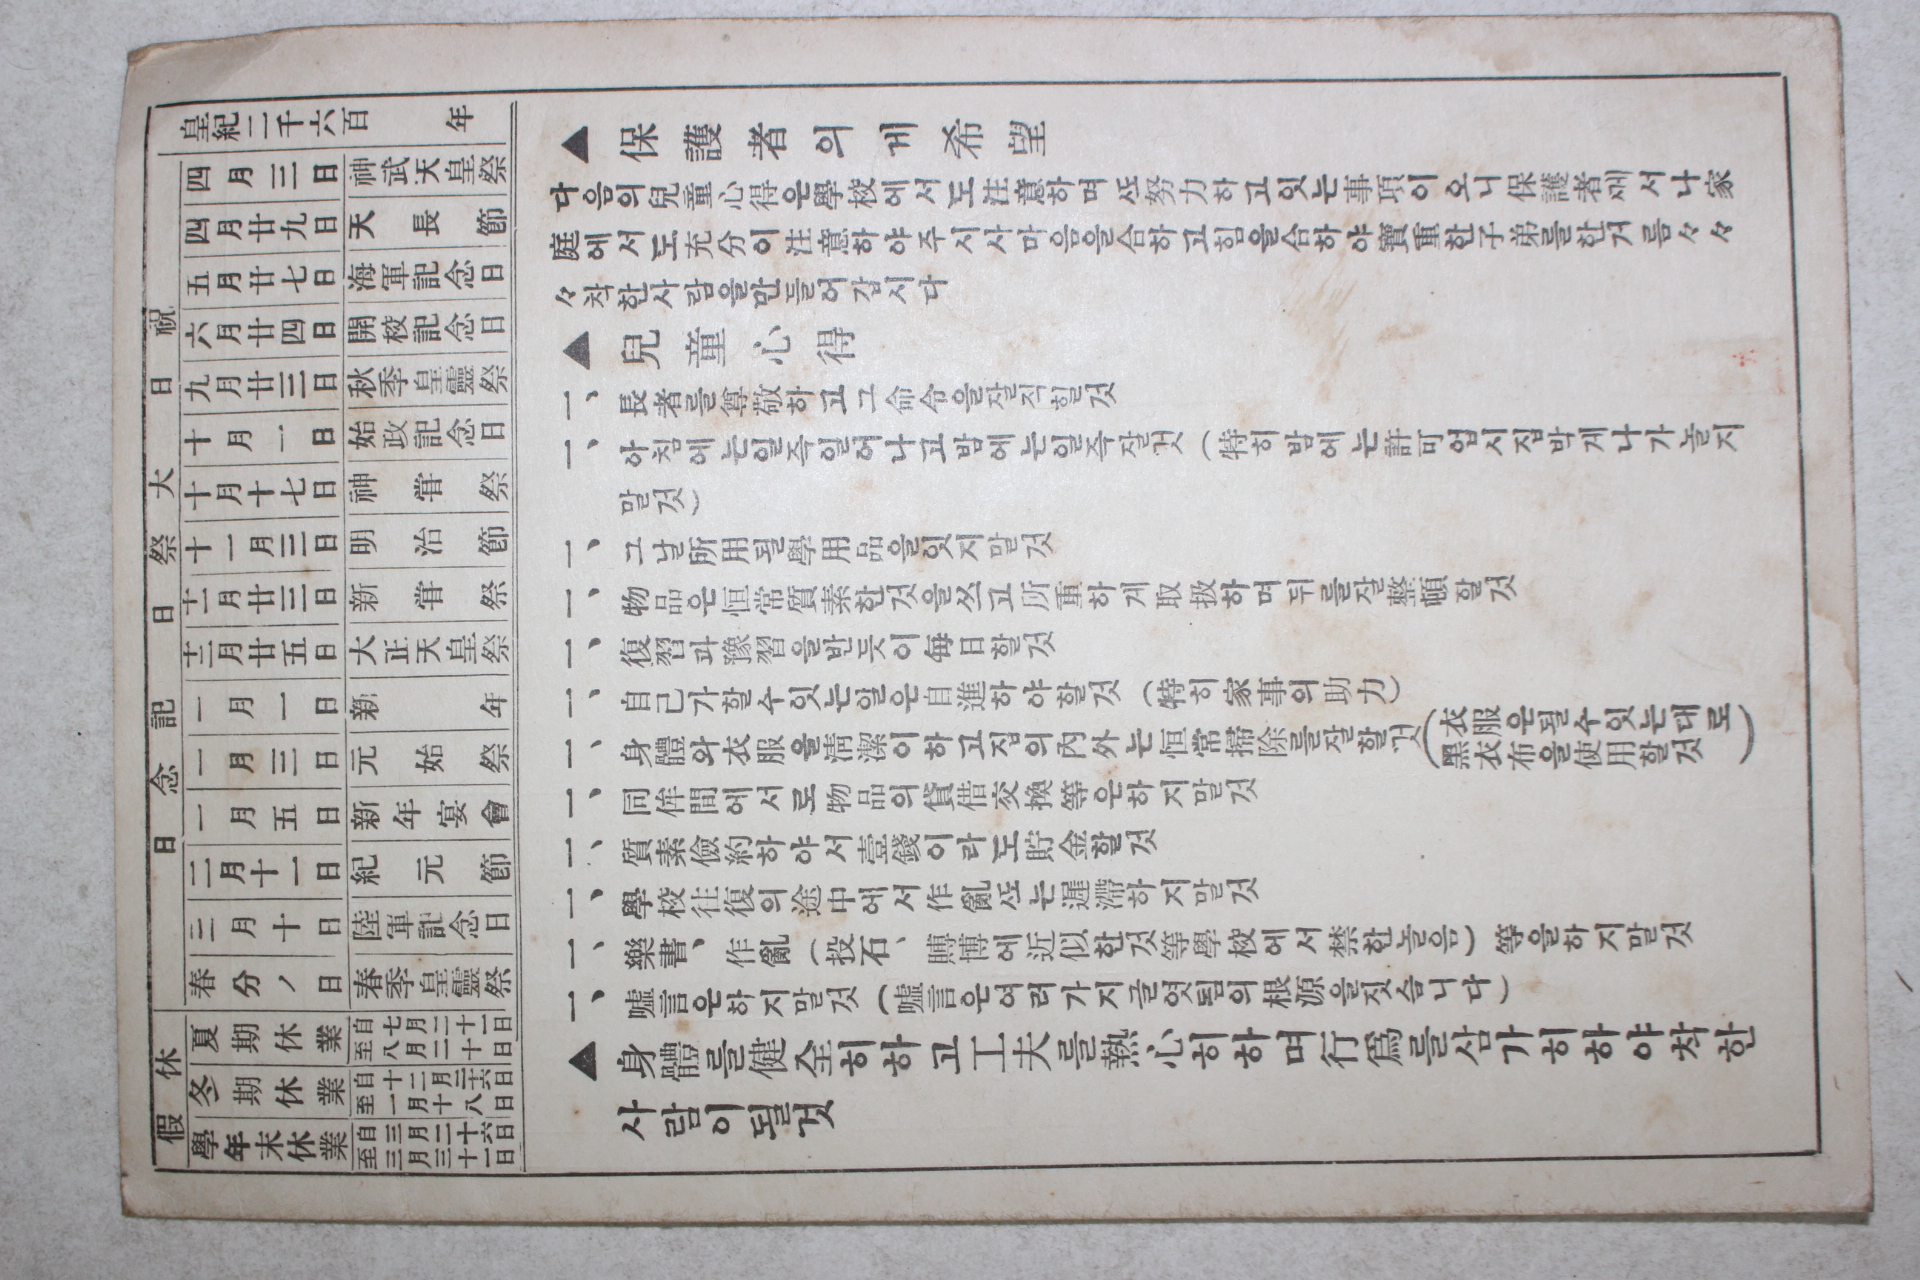 皇紀二千六百年
祝日大祭日記念日
四月三日 神武天皇祭
四月廿九日 天長節
五月廿七日 海軍記念日
六月廿四日 開校記念日
九月廿三日 秋季皇靈祭
十月一日 始政記念日
十月十七日 神甞祭
十一月三日 明治節
十一月廿三日 新甞祭
十二月廿五日 大正天皇祭
一月一日 新年
一月三日 元始祭
一月五日 新年宴會
二月十一日 紀元節
三月十日 陸軍記念日
春分ノ日 春季皇靈祭
休假
夏期休業 自七月二十一日 至八月二十日
冬期休業 自十二月二六日 至一月十八日
學年末休業 自三月二十六日 至三月三十一日
▲保護者의게希望
다음의兒童心得은學校에서도注意하며ᄯᅩ努力하고잇는事項이오니保護者ᄭᅦ서나家
庭에서도充分이注意하야주시사마음을合하고힘을合하야寶重한子弟를한거름々々
々착한사람을만들어갑시다
▲兒童心得
一、長者를尊敬하고그命令을잘직힐것
一、아침에는일즉일어나고밤에는일즉잘것(特히밤에는許可업시집박게나가놀지
말것)
一、그날所用될學用品을잇지말것
一、物品은恒常質素한것을쓰고所重하게取扱하며뒤를잘整頓할것
一、復習과豫習을반듯이每日할것
一、自己가할수잇는일은自進하야할것(特히家事의助力)
一、身體와衣服을淸潔이하고집의內外는恒常掃除를잘할것(衣服은될수잇는대로
黑衣布을使用할것)
一、同侔間에서로物品의貸借交換等은하지말것
一、質素儉約하야서壹錢이라도貯金할것
一、學校往復의途中에서作亂ᄯᅩ는遲滯하지말것
一、樂書、作亂(投石、賻博에近似한것等學校에서禁한놀음)等을하지말것
一、嘘言은하지말것(嘘言은여러가지글엿됨의根源을짓슴니다)
▲身體를健全히하고工夫를熱心히하며行爲를삼가히하야착한
사람이될것